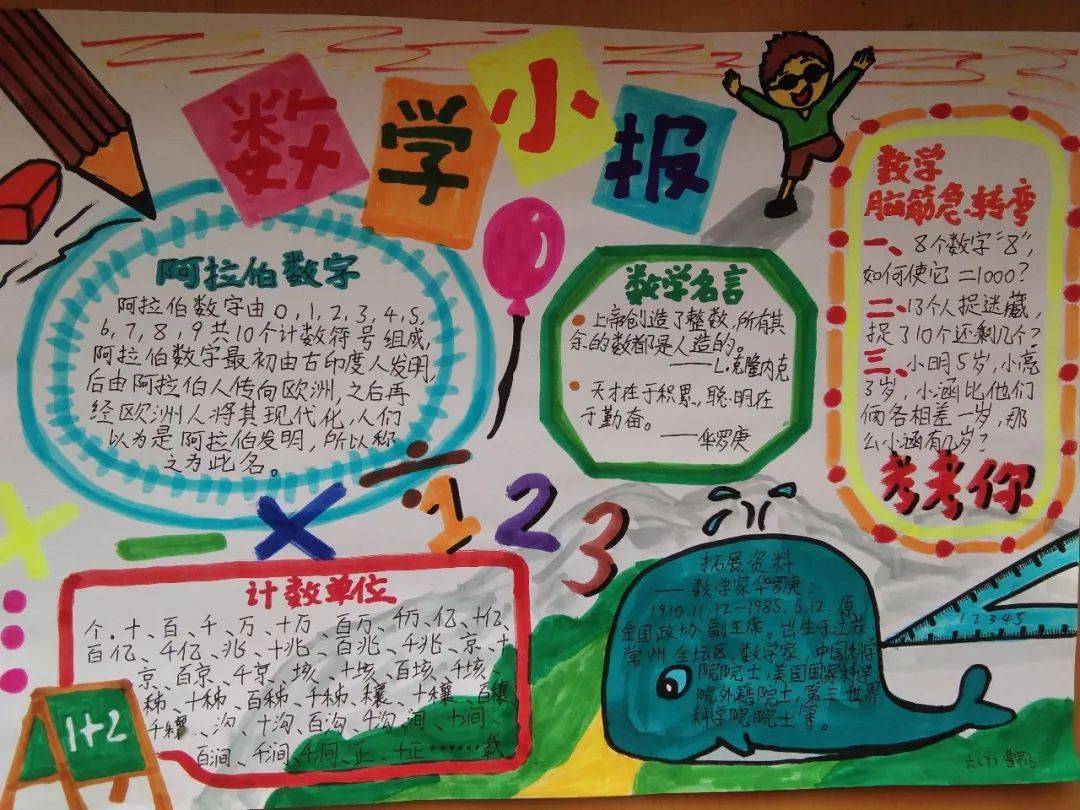 数学小报
阿拉伯数字
阿拉伯数字由0,1,2,3,4,5,
6,7,8,9共10个计数符号组成,
阿拉伯数字最初由古印度人发明,
后由阿拉伯人传向欧洲,之后再
经欧洲人将其现代化,人们
以为是阿拉伯发明,所以称
之为此名。
数学名言
上帝创造了整数,所有其
余的数都是人造的。
——L.克隆内克
天才在于积累,聪明在
于勤奋。
——华罗庚
数学
脑筋急转弯
一、8个数字“8”,
如何使它=1000?
二、13个人捉迷藏,
捉了10个还剩几个?
三、小明5岁,小亮
3岁,小涵比他们
俩各相差一岁,那
么小涵有几岁?
考考你
÷
+ — × 1 2 3
计数单位
个、十、百、千、万、十万、百万、千万、亿、十亿、
百亿、千亿、兆、十兆、百兆、千兆、京、十
京、百京、千京、垓、十垓、百垓、千垓、
秭、十秭、百秭、千秭、穰、十穰、百穰、
千穰、沟、十沟、百沟、千沟、涧、十涧、
百涧、千涧、正、十正……载
1+2
拓展资料
——数学家华罗庚:
1910.11.12—1985.6.12.原
全国政协副主席。出生于江苏
常州金坛区,数学家,中国科学
院院士,美国国家科学
院外籍院士,第三世界
科学院院士等。
1 2 3 4 5
六(3)